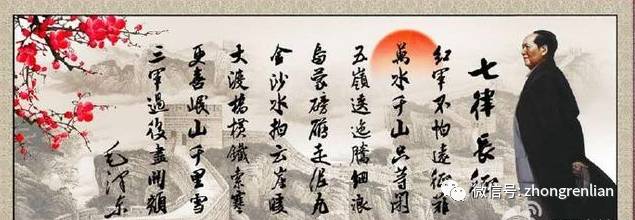 七律長征
紅軍不怕遠征難
萬水千山只等閑
五嶺逶迤騰細浪
烏蒙磅礴走泥丸
金沙水拍云崖暖
大渡橋橫鐵索寒
更喜岷山千里雪
三軍過後盡開顏
毛澤東
微信号:zhongrenlian